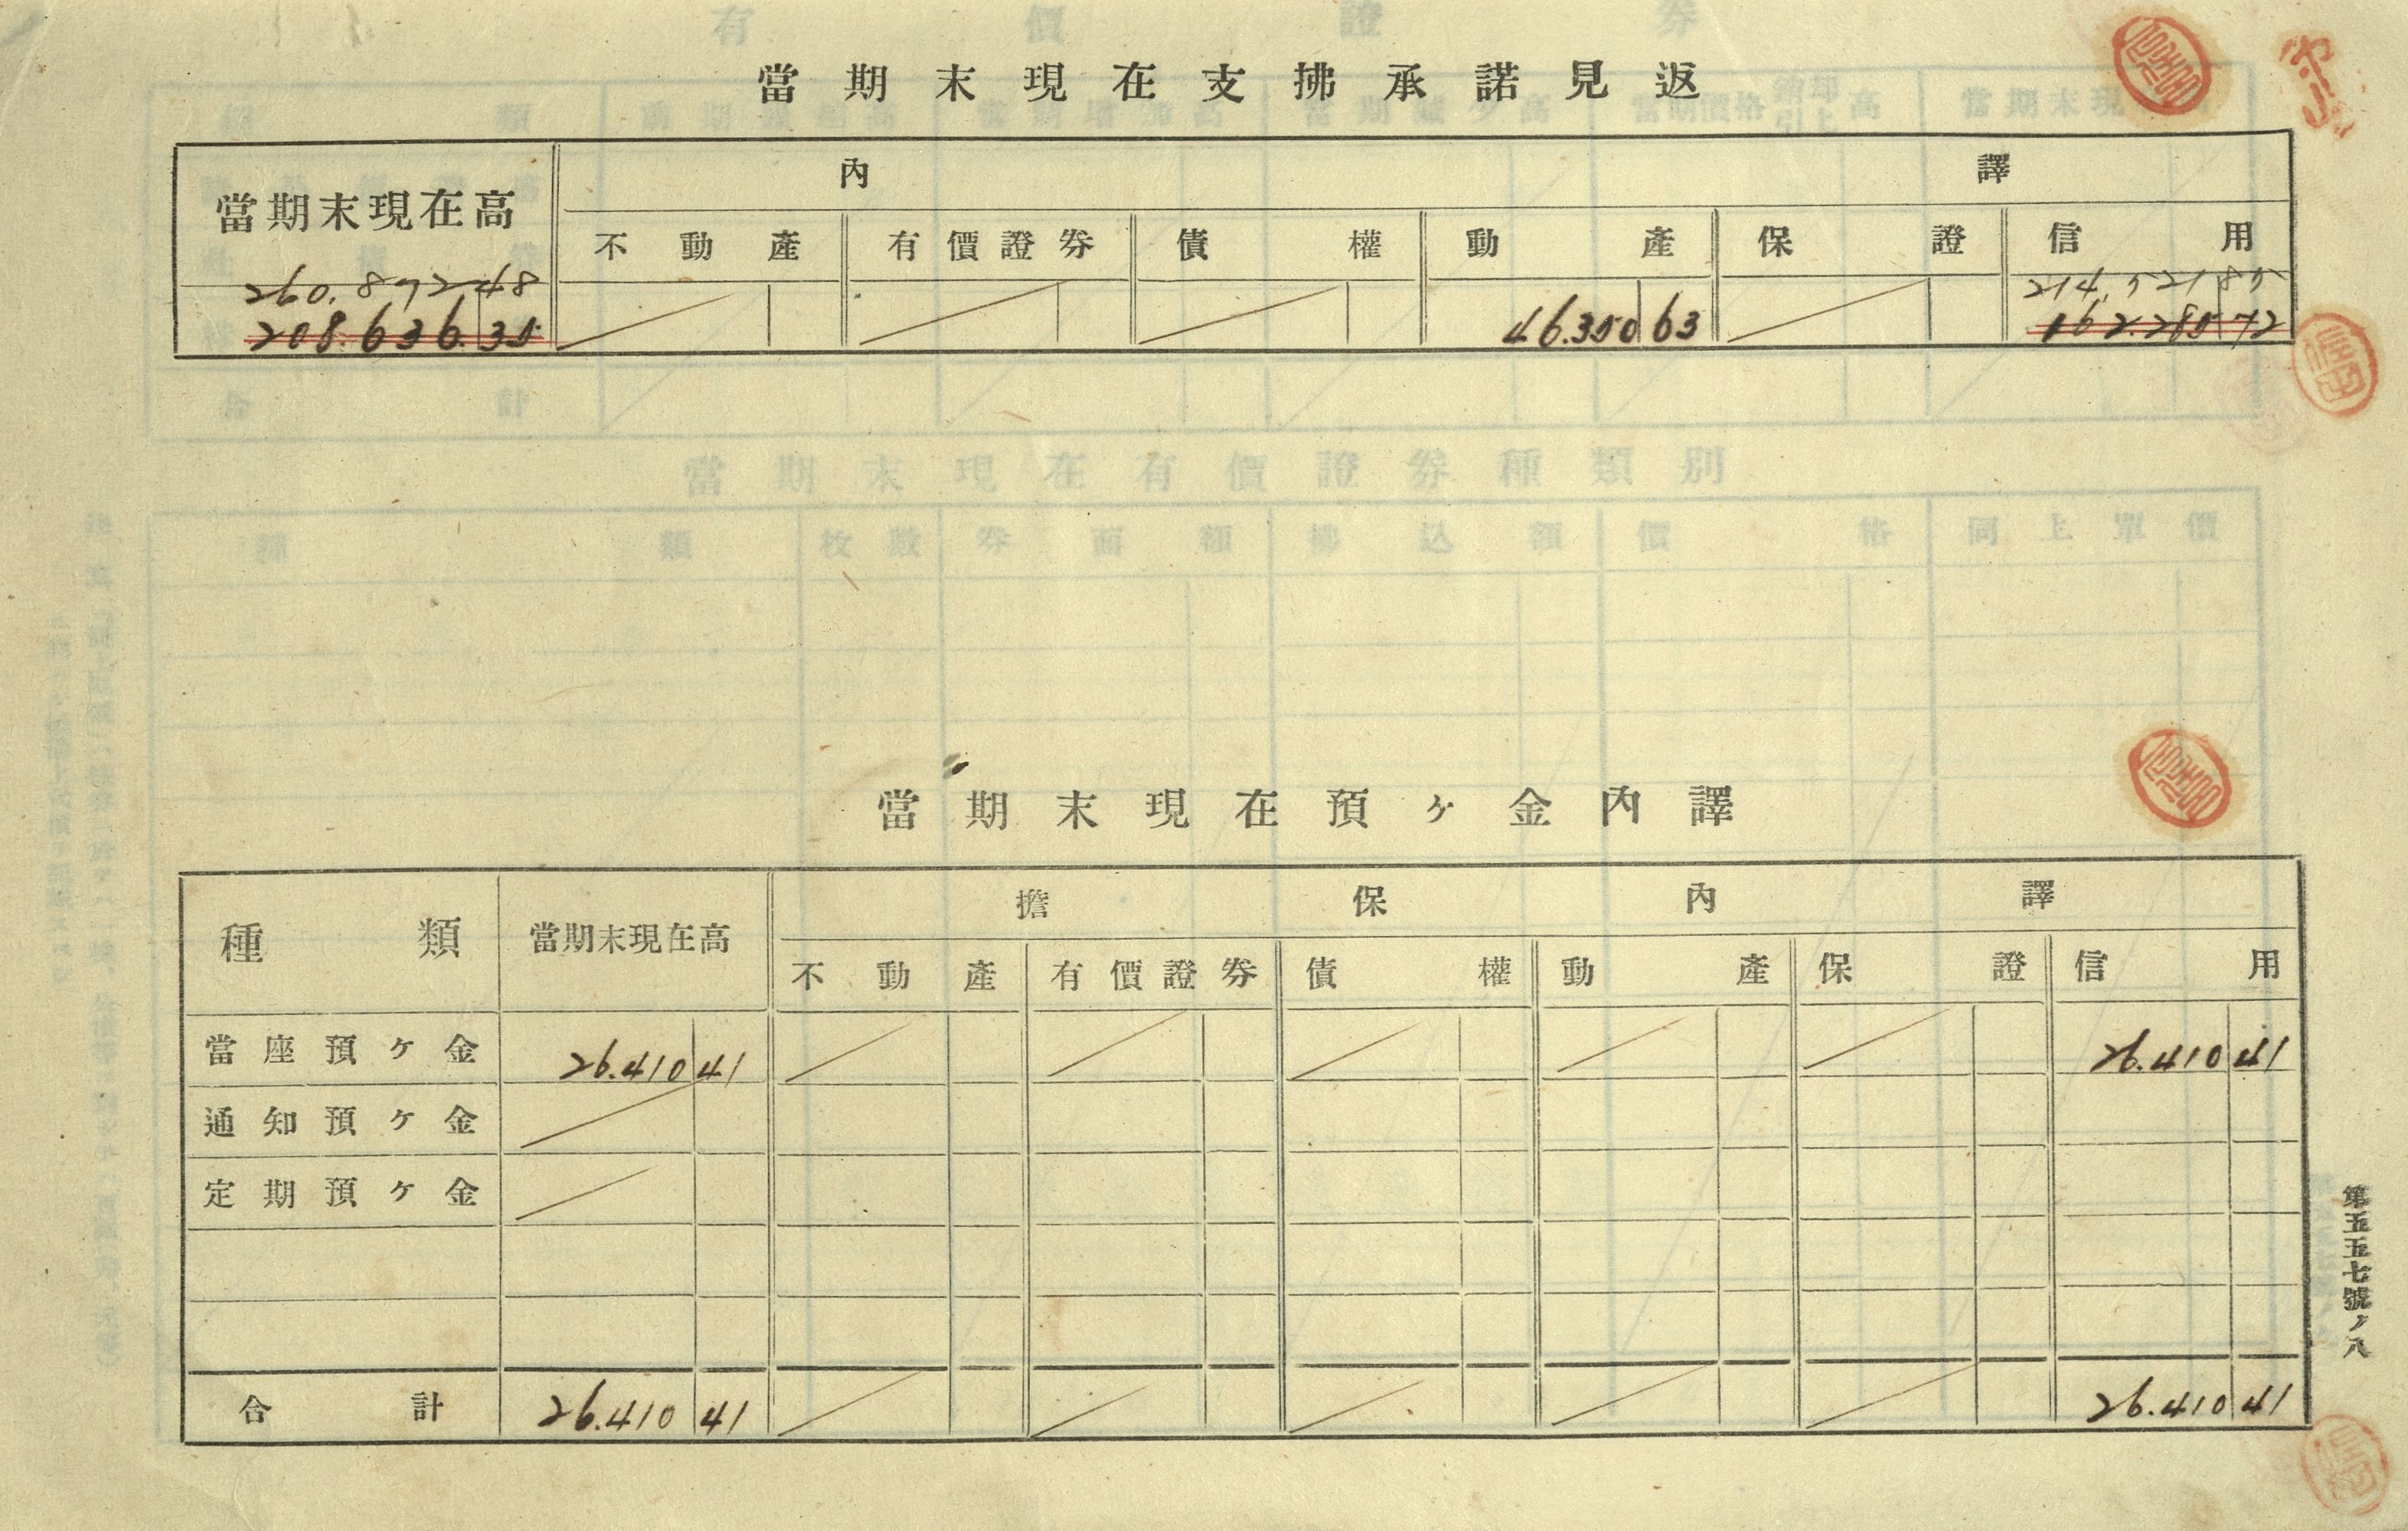 當期末現在支拂承諾見返
當期末現在高 內譯
不動產 有價證券 債權 動產 保證 信用
260.872 48 214.521 85
208.636.35 46.350 63 162.285 72
當期末現在預ヶ金內譯
種類 當期末現在高 擔保內譯
不動產 有價證券 債權 動產 保證 信用
當座預ヶ金 26.410 41 26.410 41
通知預ヶ金
定期預ヶ金
合計 26.410 41 26.410 41
第五五七號ノ八